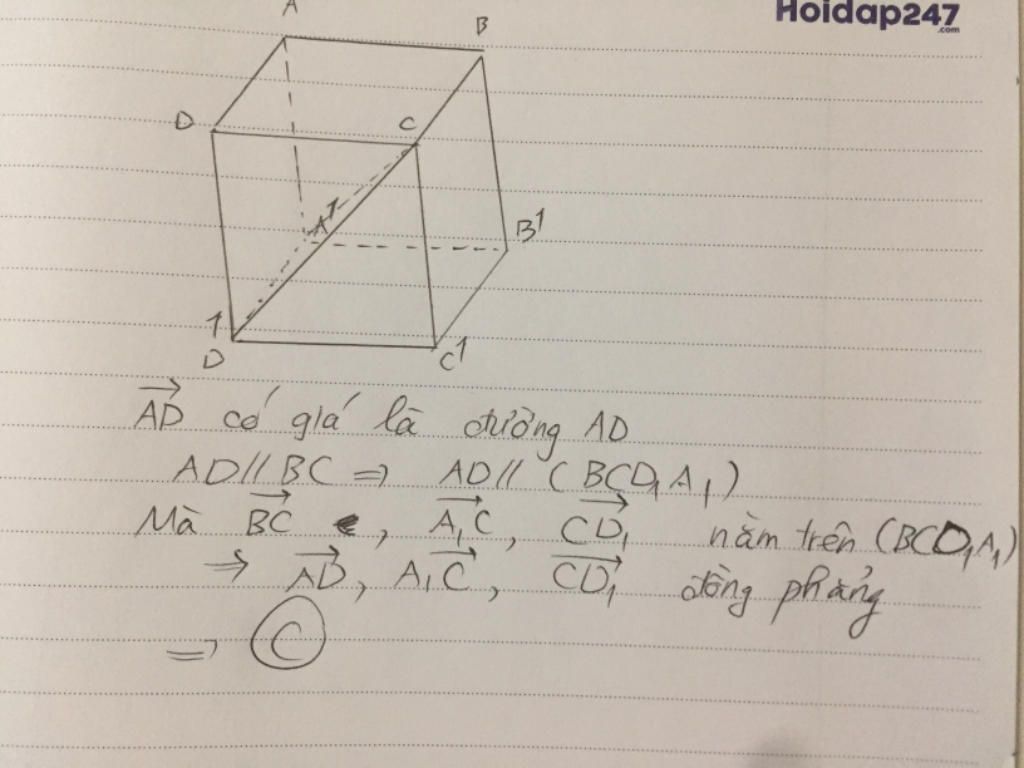 Hoidap247
.com
A
B
D
C
A1
B1
1
D
C1
AD có giá là đường AD
AD // BC => AD // (BCD₁A₁)
Mà BC , A₁C, CD₁ nằm trên (BCD₁A₁)
=> AD, A₁C, CD₁ đồng phẳng
=> C